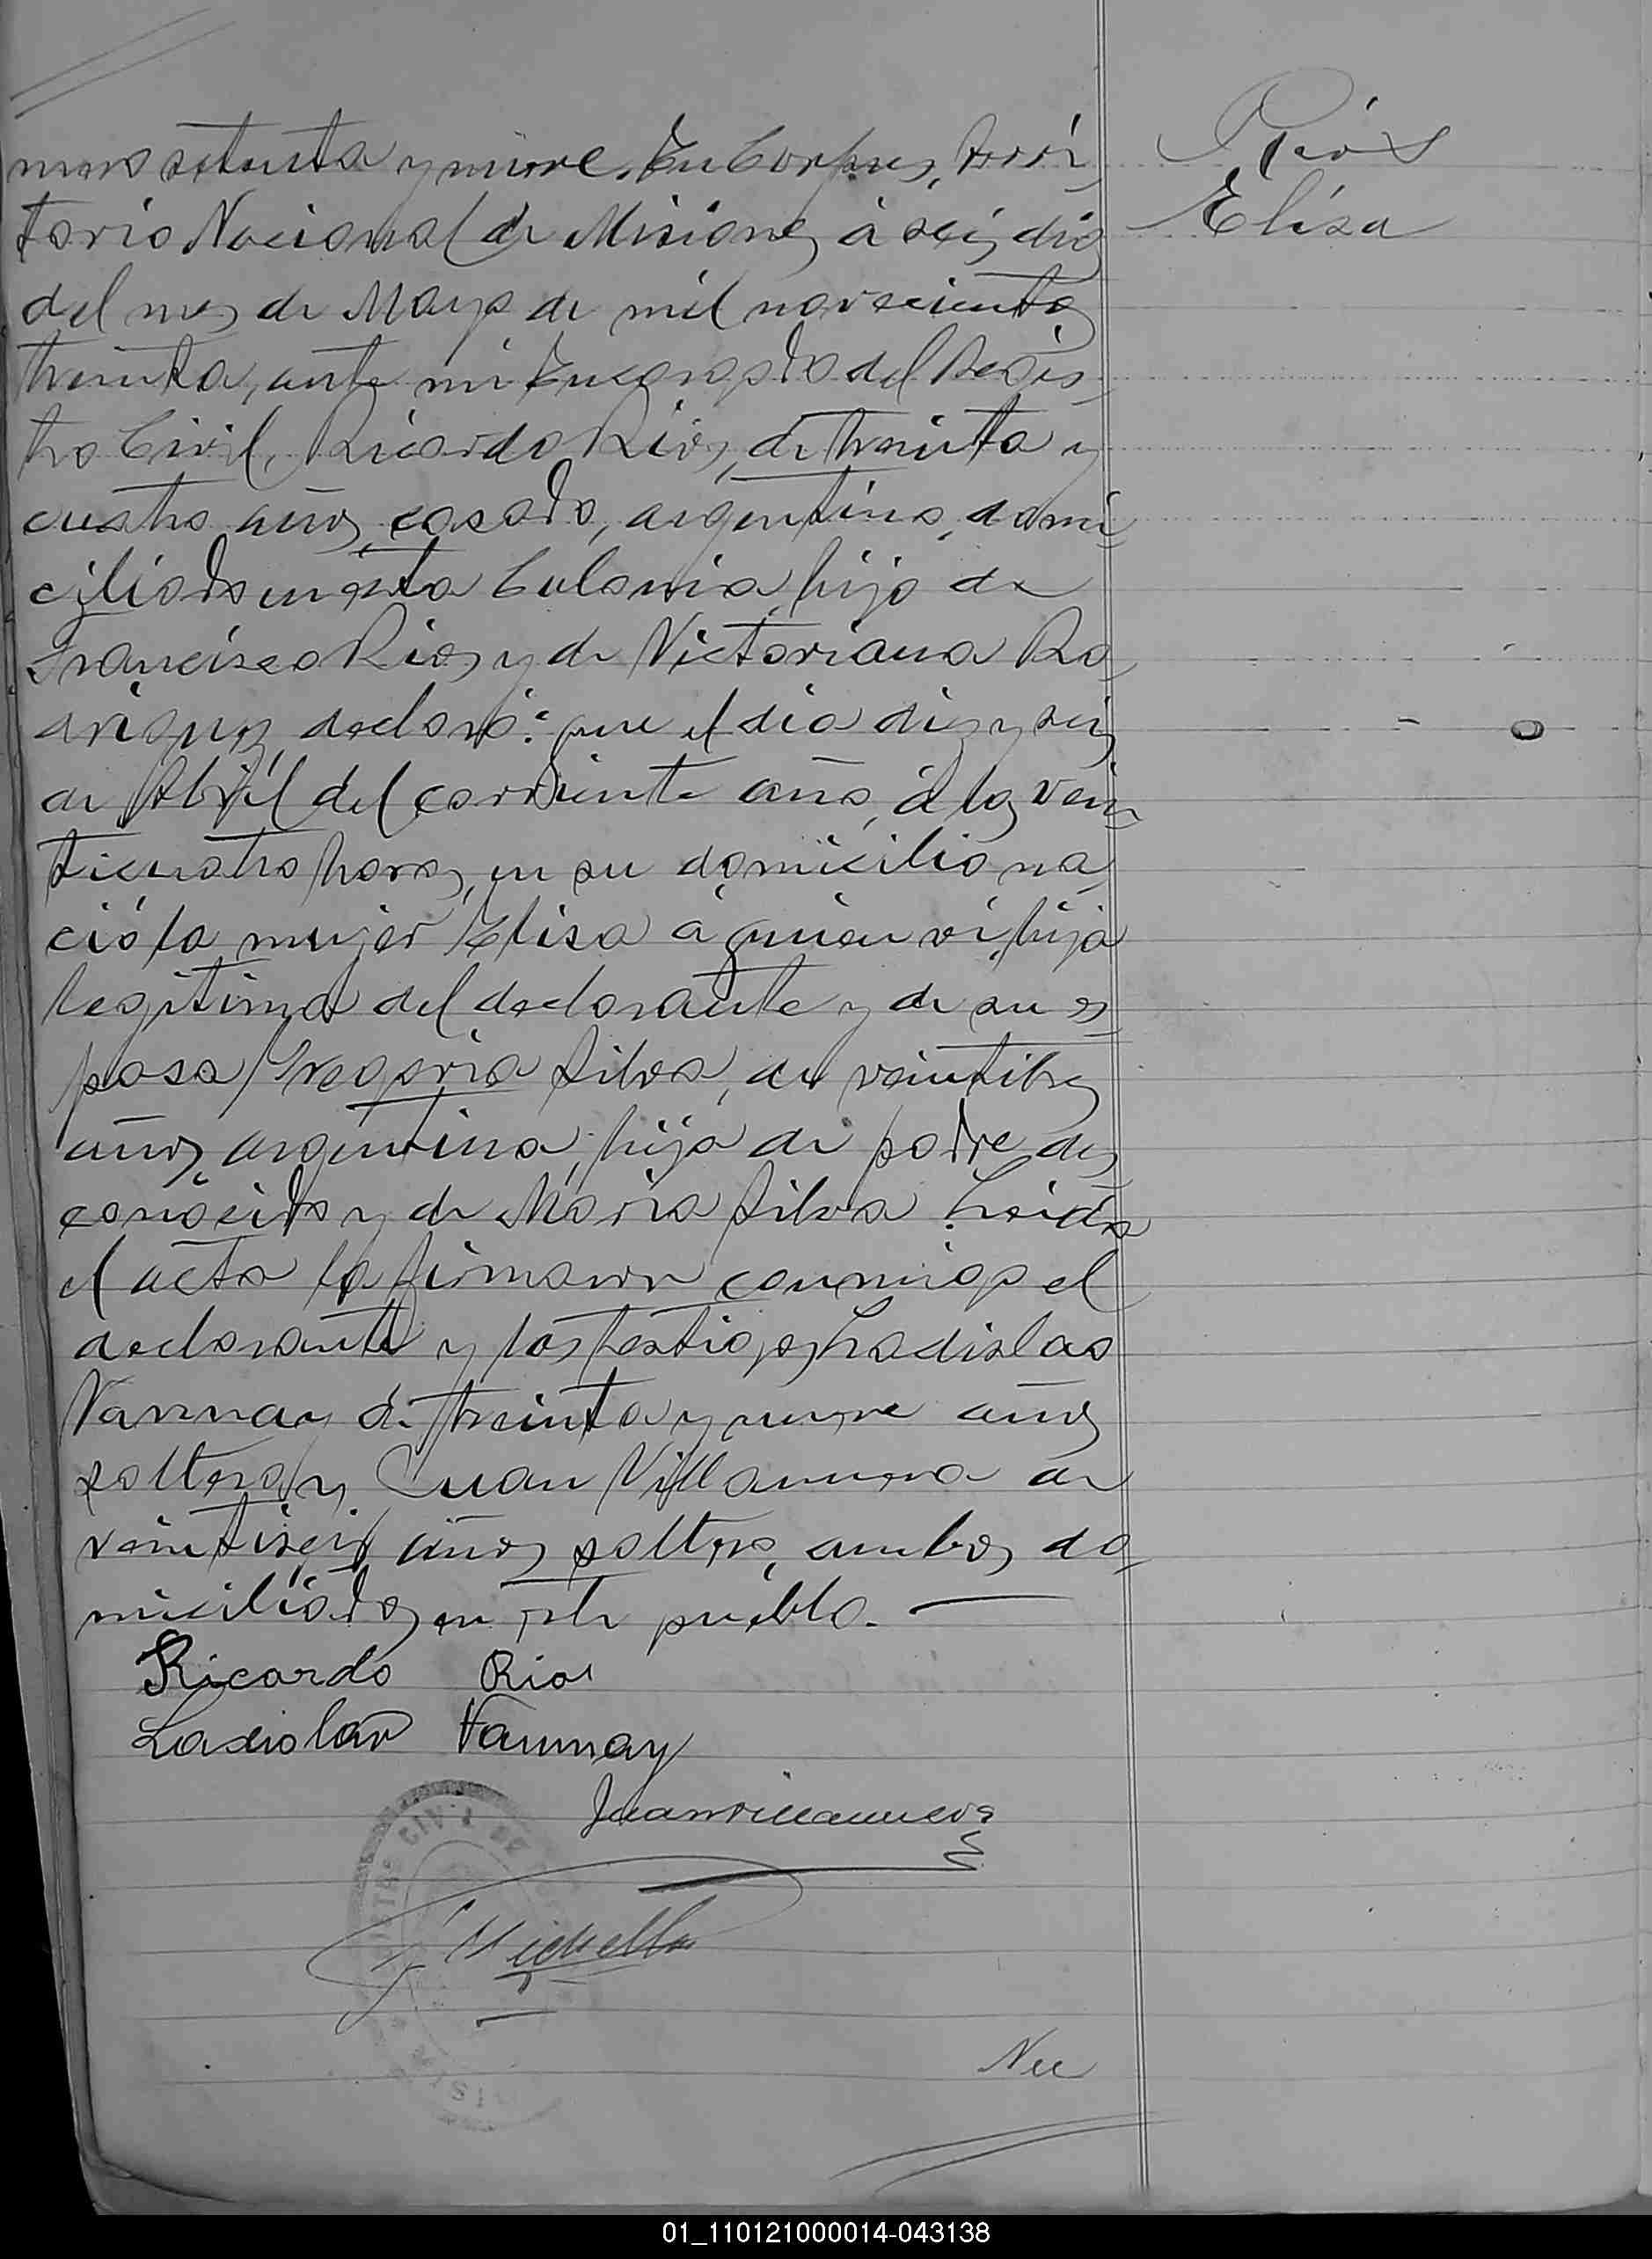 mero setenta y nueve. En Corpus, Terri
torio Nacional de Misiones a seis dias
del mes de Mayo de mil novecientos
treinta, ante mi Encargado del Regis
tro Civil, Ricardo Rios, de treinta y
cuatro años, casado, argentino, domi
ciliado en esta Colonia, hijo de
Francisco Rios y de Victoriana Ro
driguez, declaró: que el dia diez y seis
de Abril del corriente año, á las vein
ticuatro horas, en su domicilio na
ció la mujer Elisa a quien vi, hija
legitima del declarante y de su es
posa Gregoria Silva, de veintitres
años, argentina, hija de padre des
conocido y de Maria Silva. Leida
el acta la firmaron conmigo el
declarante y los testigos Ladislao
Varnnay de treinta y nueve años
soltero y Juan Villanueva de
veintiseis años, soltero, ambos do
miciliados en este pueblo.
Ricardo Rios
Ladislao Varnnay
Juan Villanueva
Nu
Rios
Elisa
01_110121000014-043138